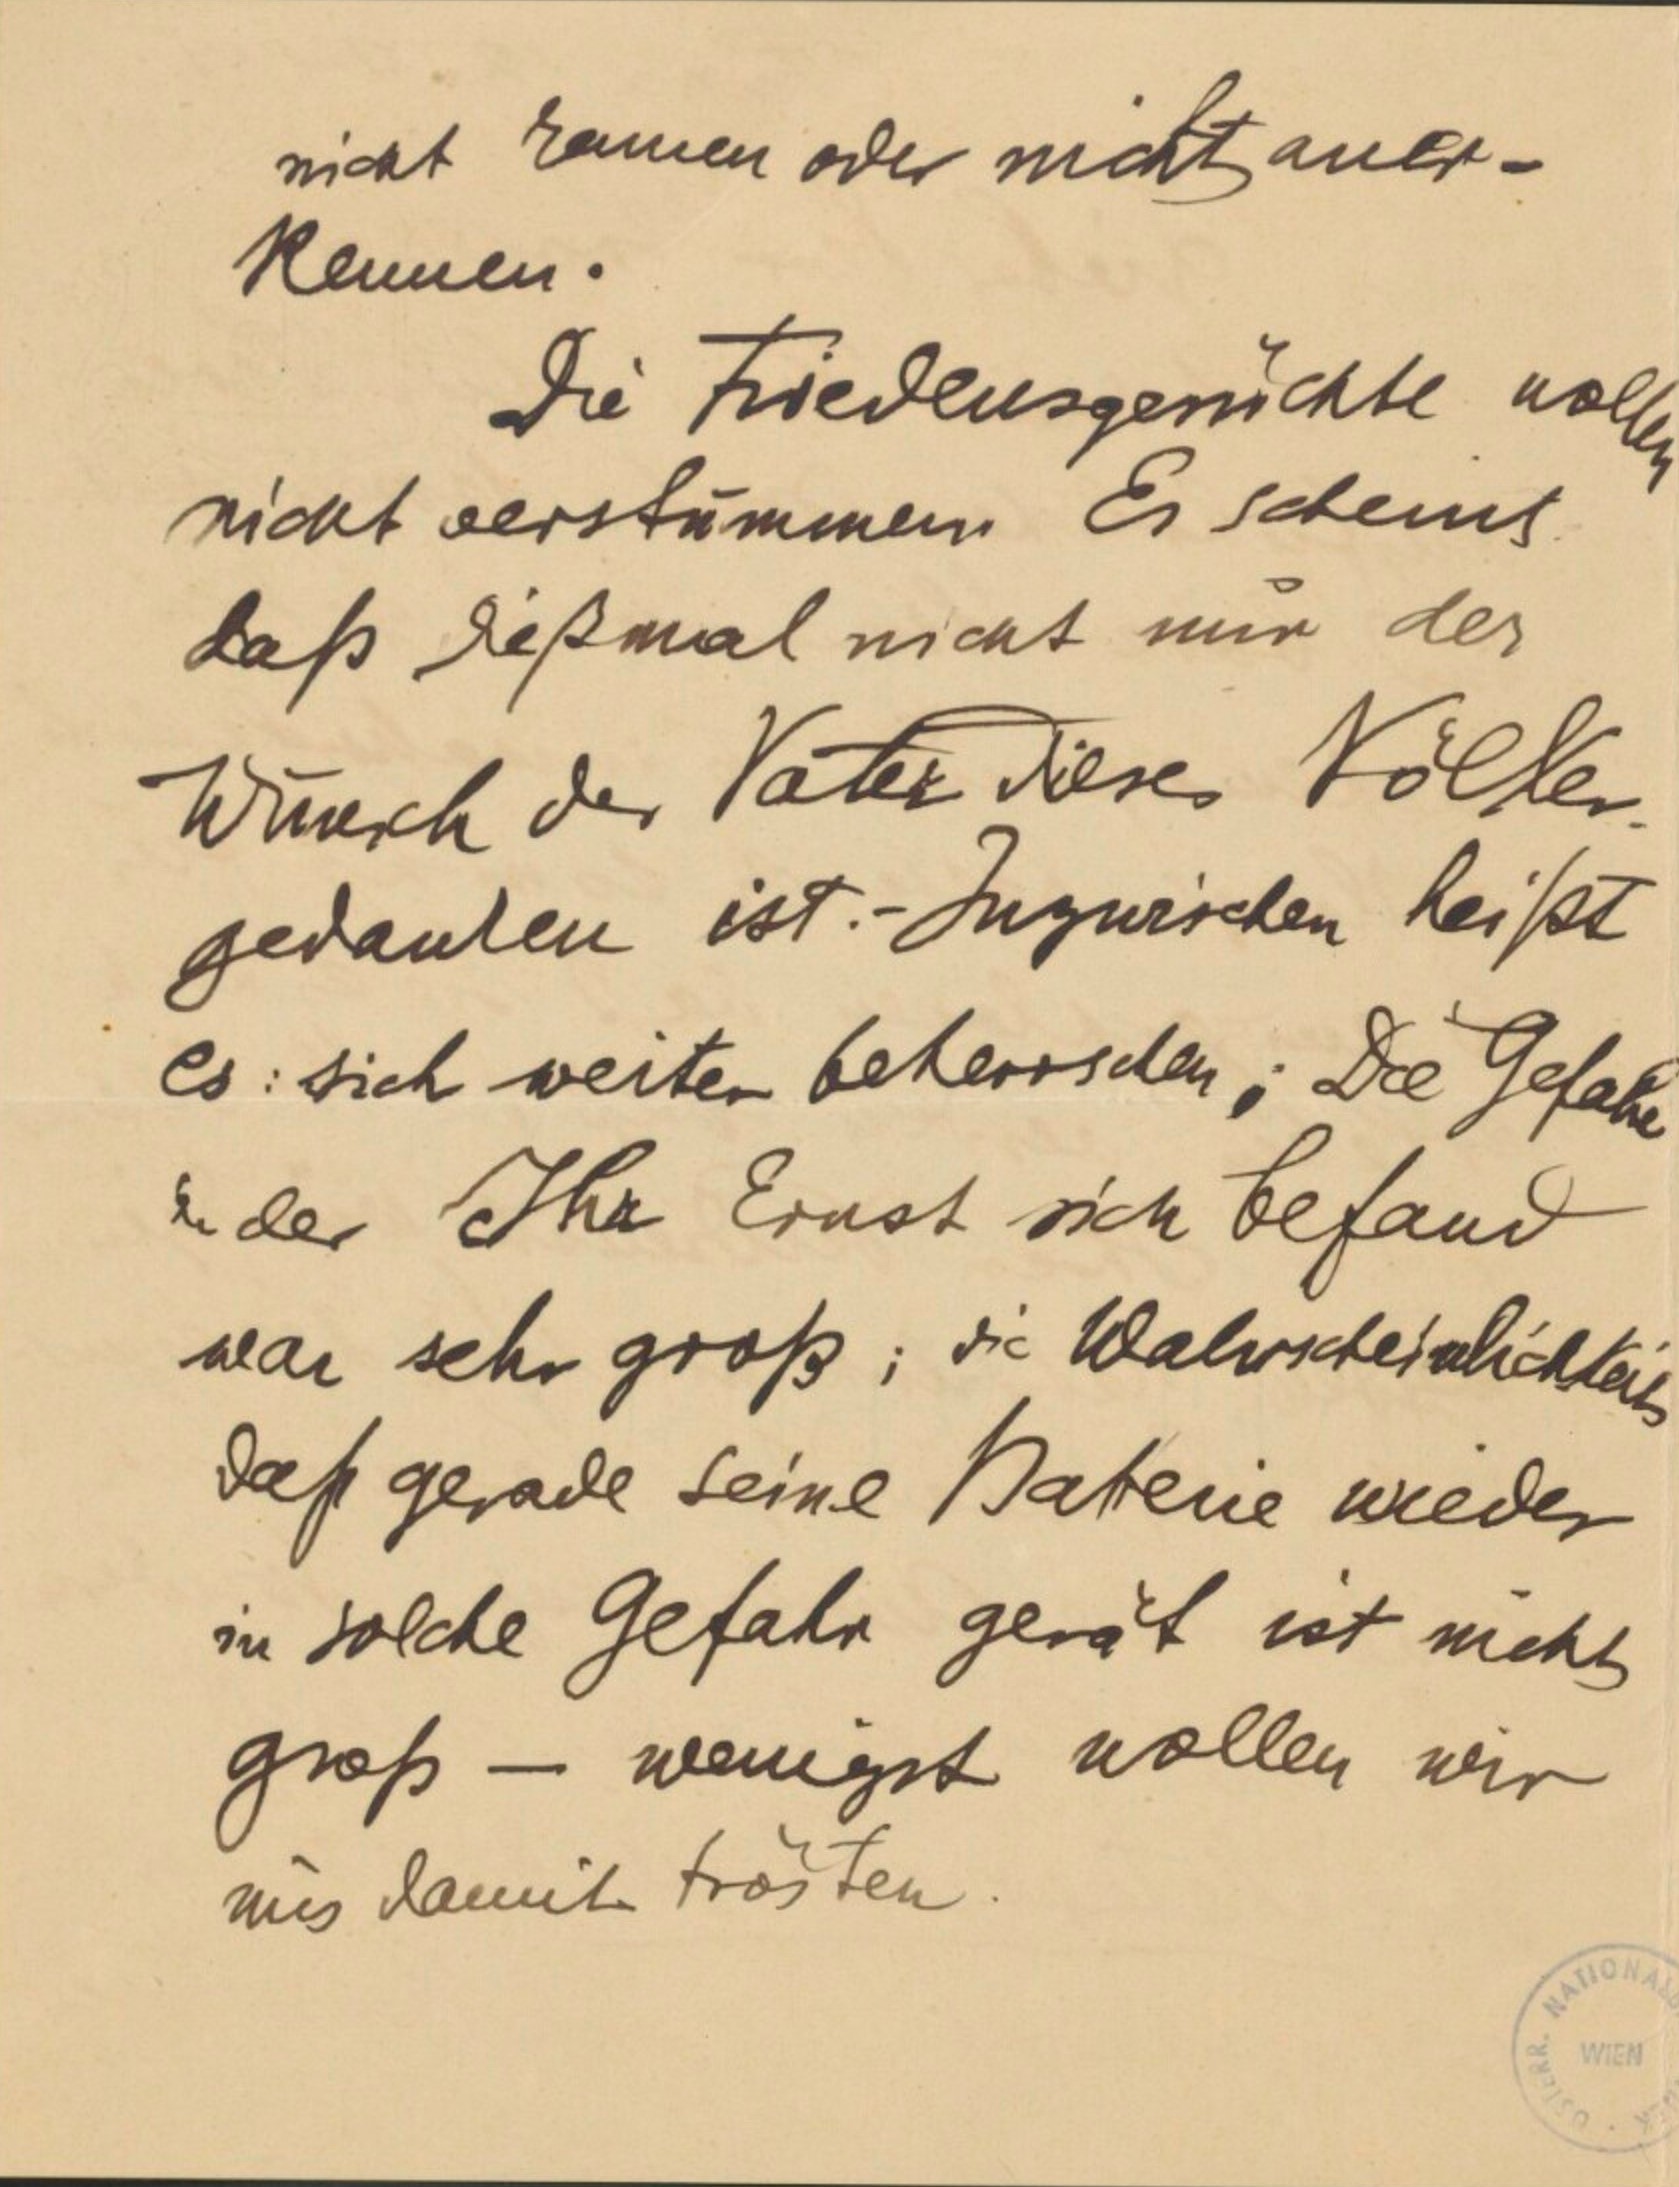 nicht kennen oder nicht aner-
kennen.
Die Friedensgerüchte wollen
nicht verstummen Es scheint
daß dießmal nicht nur der
Wunsch der Vater dieses Völker-
gedanken ist.- Inzwischen heißt
es: sich weiter beherrschen; Die Gefahr
in der Ihr Ernst sich befand
war sehr groß; die Wahrscheinlichkeit
daß gerade seine Batterie wieder
in solche Gefahr gerät ist nicht
groß — wenigst wollen wir
uns damit trösten.
ÖSTERR. NATIONAL
WIEN